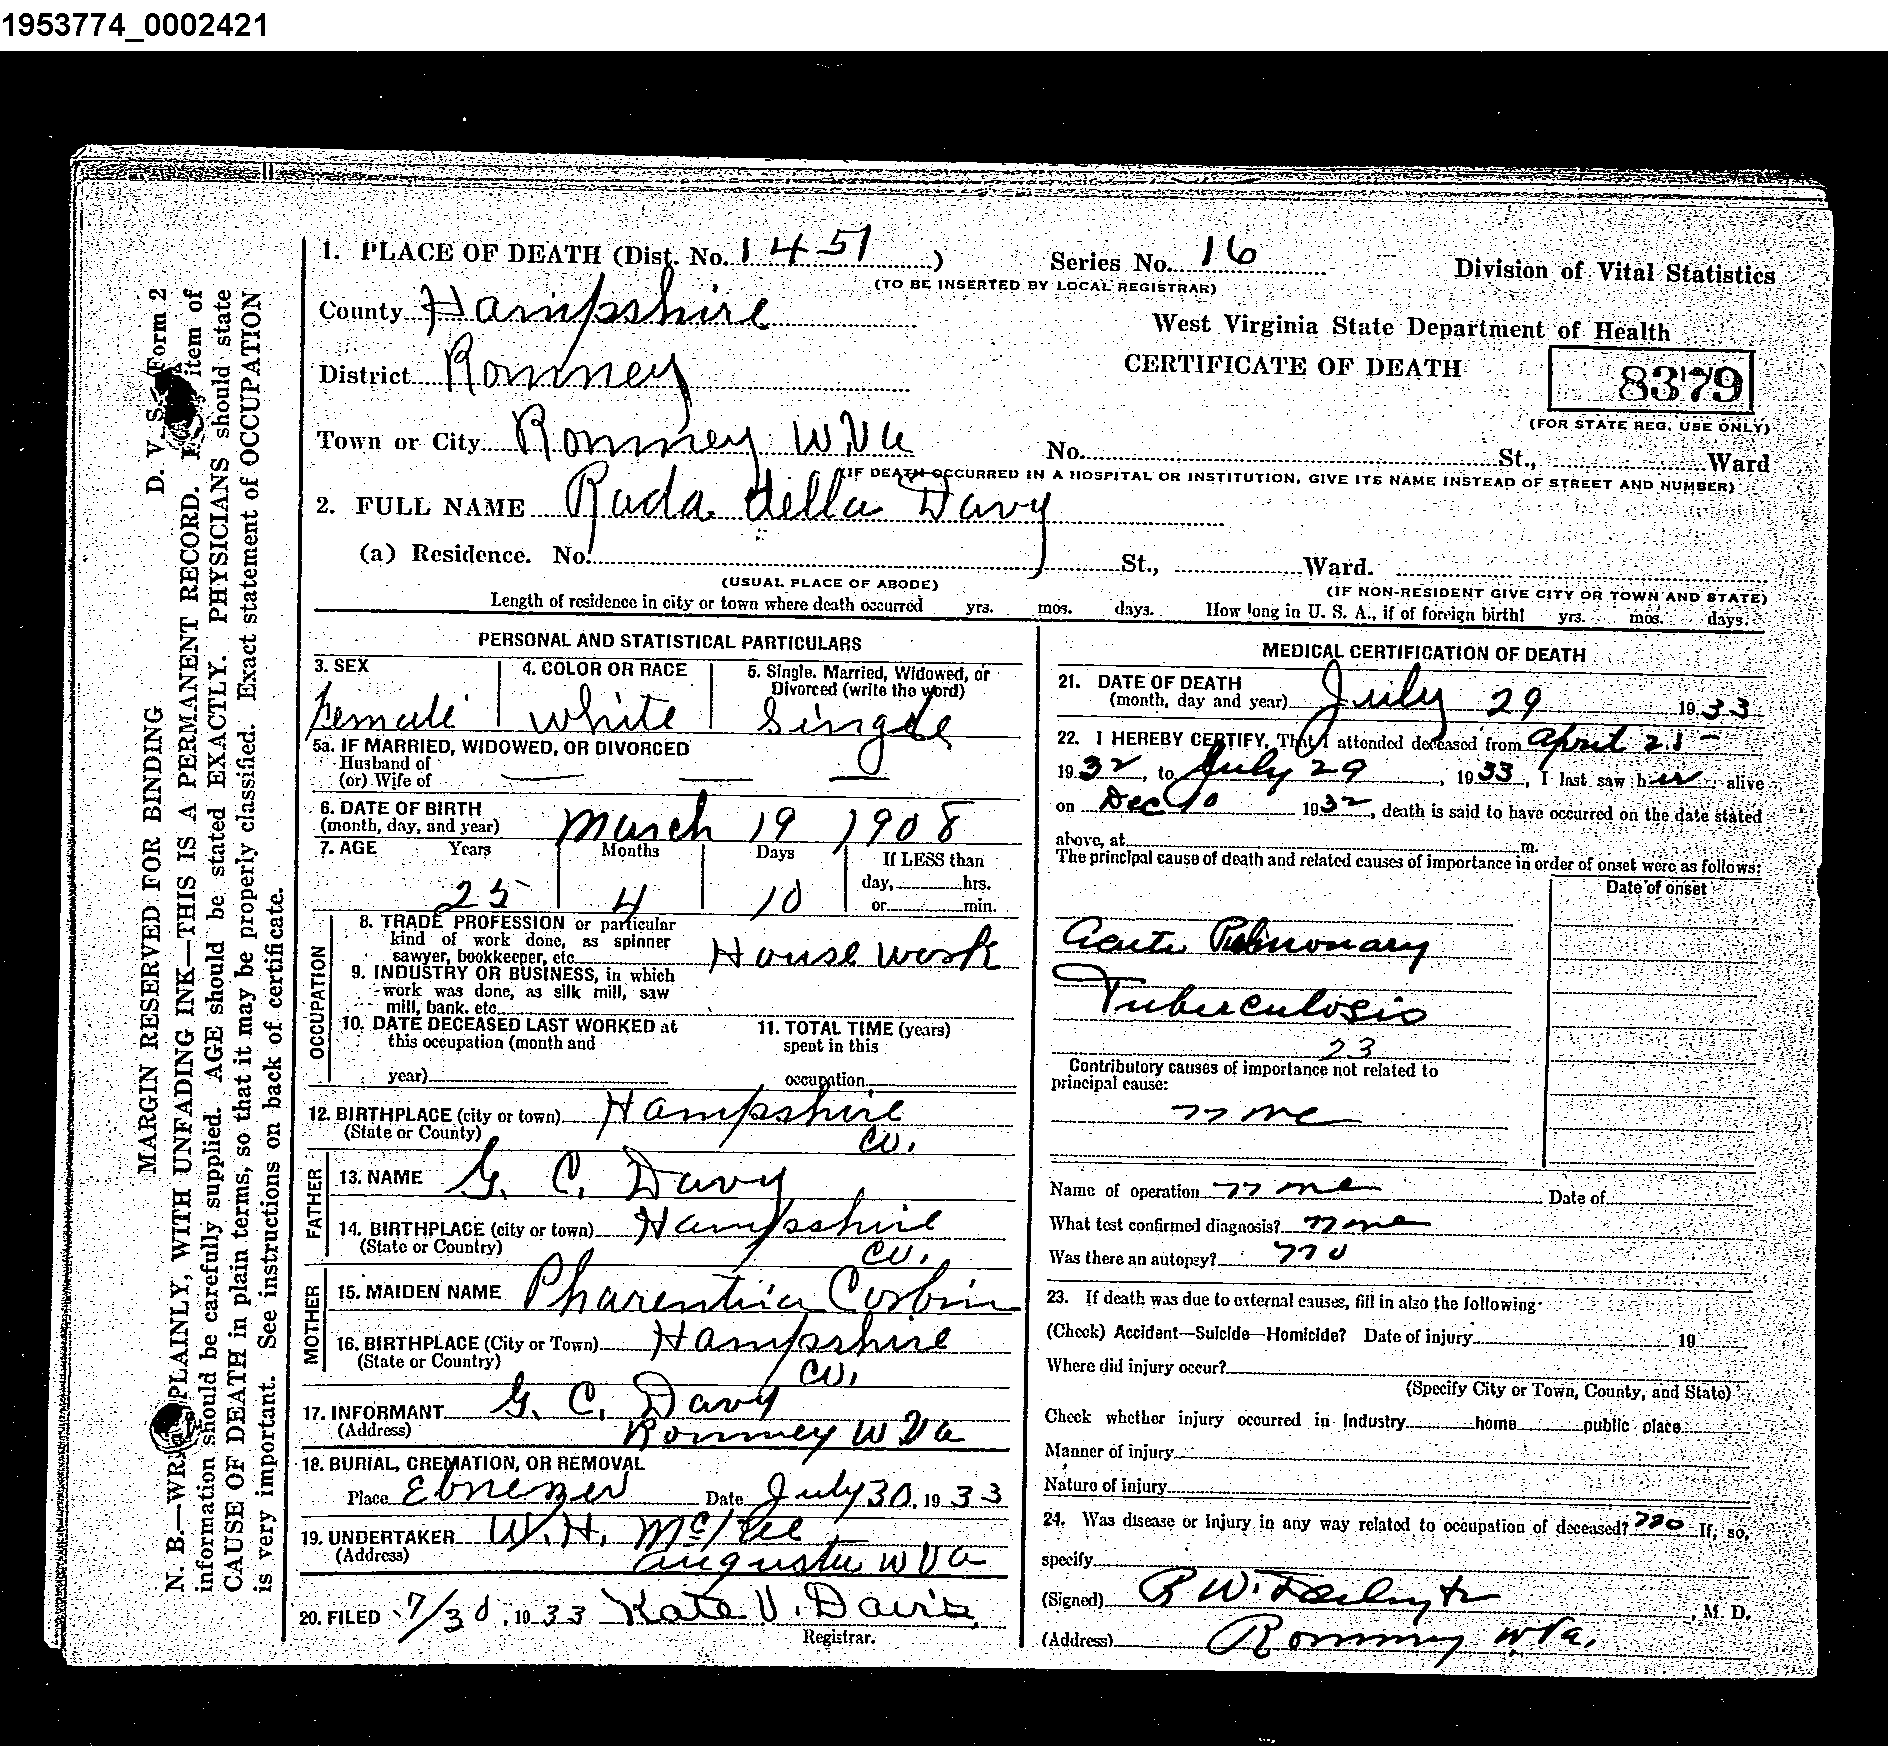 1953774_0002421
MARGIN RESERVED FOR BINDING D. V. S. Form 2
N. B.—WRITE PLAINLY, WITH UNFADING INK—THIS IS A PERMANENT RECORD. item of
information should be carefully supplied. AGE should be stated EXACTLY. PHYSICIANS should state
CAUSE OF DEATH in plain terms, so that it may be properly classified. Exact statement of OCCUPATION
is very important. See instructions on back of certificate.
1. PLACE OF DEATH (Dist. No. 1451) Series No. 16 Division of Vital Statistics
(TO BE INSERTED BY LOCAL REGISTRAR)
County Hampshire West Virginia State Department of Health
District Romney CERTIFICATE OF DEATH 8379
(FOR STATE REG. USE ONLY)
Town or City Romney W.Va No. St., Ward
(IF DEATH OCCURRED IN A HOSPITAL OR INSTITUTION, GIVE ITS NAME INSTEAD OF STREET AND NUMBER)
2. FULL NAME Ruda della Davy
(a) Residence. No. St., Ward.
(USUAL PLACE OF ABODE) (IF NON-RESIDENT GIVE CITY OR TOWN AND STATE)
Length of residence in city or town where death occurred yrs. mos. days. How long in U. S. A., if of foreign birth? yrs. mos. days.
PERSONAL AND STATISTICAL PARTICULARS
3. SEX 4. COLOR OR RACE 5. Single. Married, Widowed, or
Divorced (write the word)
Female white Single
5a. IF MARRIED, WIDOWED, OR DIVORCED
Husband of
(or) Wife of
6. DATE OF BIRTH
(month, day, and year) March 19 1908
7. AGE Years Months Days If LESS than
day, hrs.
25 4 10 or min.
OCCUPATION
8. TRADE PROFESSION or particular
kind of work done, as spinner
sawyer, bookkeeper, etc. House work
9. INDUSTRY OR BUSINESS, in which
work was done, as silk mill, saw
mill, bank, etc.
10. DATE DECEASED LAST WORKED at 11. TOTAL TIME (years)
this occupation (month and spent in this
year) occupation
12. BIRTHPLACE (city or town) Hampshire
(State or County) Co.
FATHER
13. NAME G. C. Davy
14. BIRTHPLACE (city or town) Hampshire
(State or Country) Co.
MOTHER
15. MAIDEN NAME Pharentia Corbin
16. BIRTHPLACE (City or Town) Hampshire
(State or Country) Co.
17. INFORMANT G. C. Davy
(Address) Romney W Va
18. BURIAL, CREMATION, OR REMOVAL
Place Ebnezer Date July 30, 1933
19. UNDERTAKER W. H. McKee
(Address) Augusta W Va
20. FILED 7/30, 1933 Kate V. Davis
Registrar.
MEDICAL CERTIFICATION OF DEATH
21. DATE OF DEATH
(month, day and year) July 29 1933
22. I HEREBY CERTIFY, That I attended deceased from April 21
1932, to July 29, 1933, I last saw her alive
on Dec 10 1932, death is said to have occurred on the date stated
above, at m.
The principal cause of death and related causes of importance in order of onset were as follows:
Date of onset
Acute Pulmonary
Tuberculosis
23
Contributory causes of importance not related to
principal cause:
none
Name of operation none Date of
What test confirmed diagnosis? none
Was there an autopsy? no
23. If death was due to external causes, fill in also the following
(Check) Accident—Suicide—Homicide? Date of injury 19
Where did injury occur?
(Specify City or Town, County, and State)
Check whether injury occurred in Industry home public place
Manner of injury
Nature of injury
24. Was disease or Injury in any way related to occupation of deceased? no If, so,
specify
(Signed) R W. , M. D.
(Address) Romney W.Va.